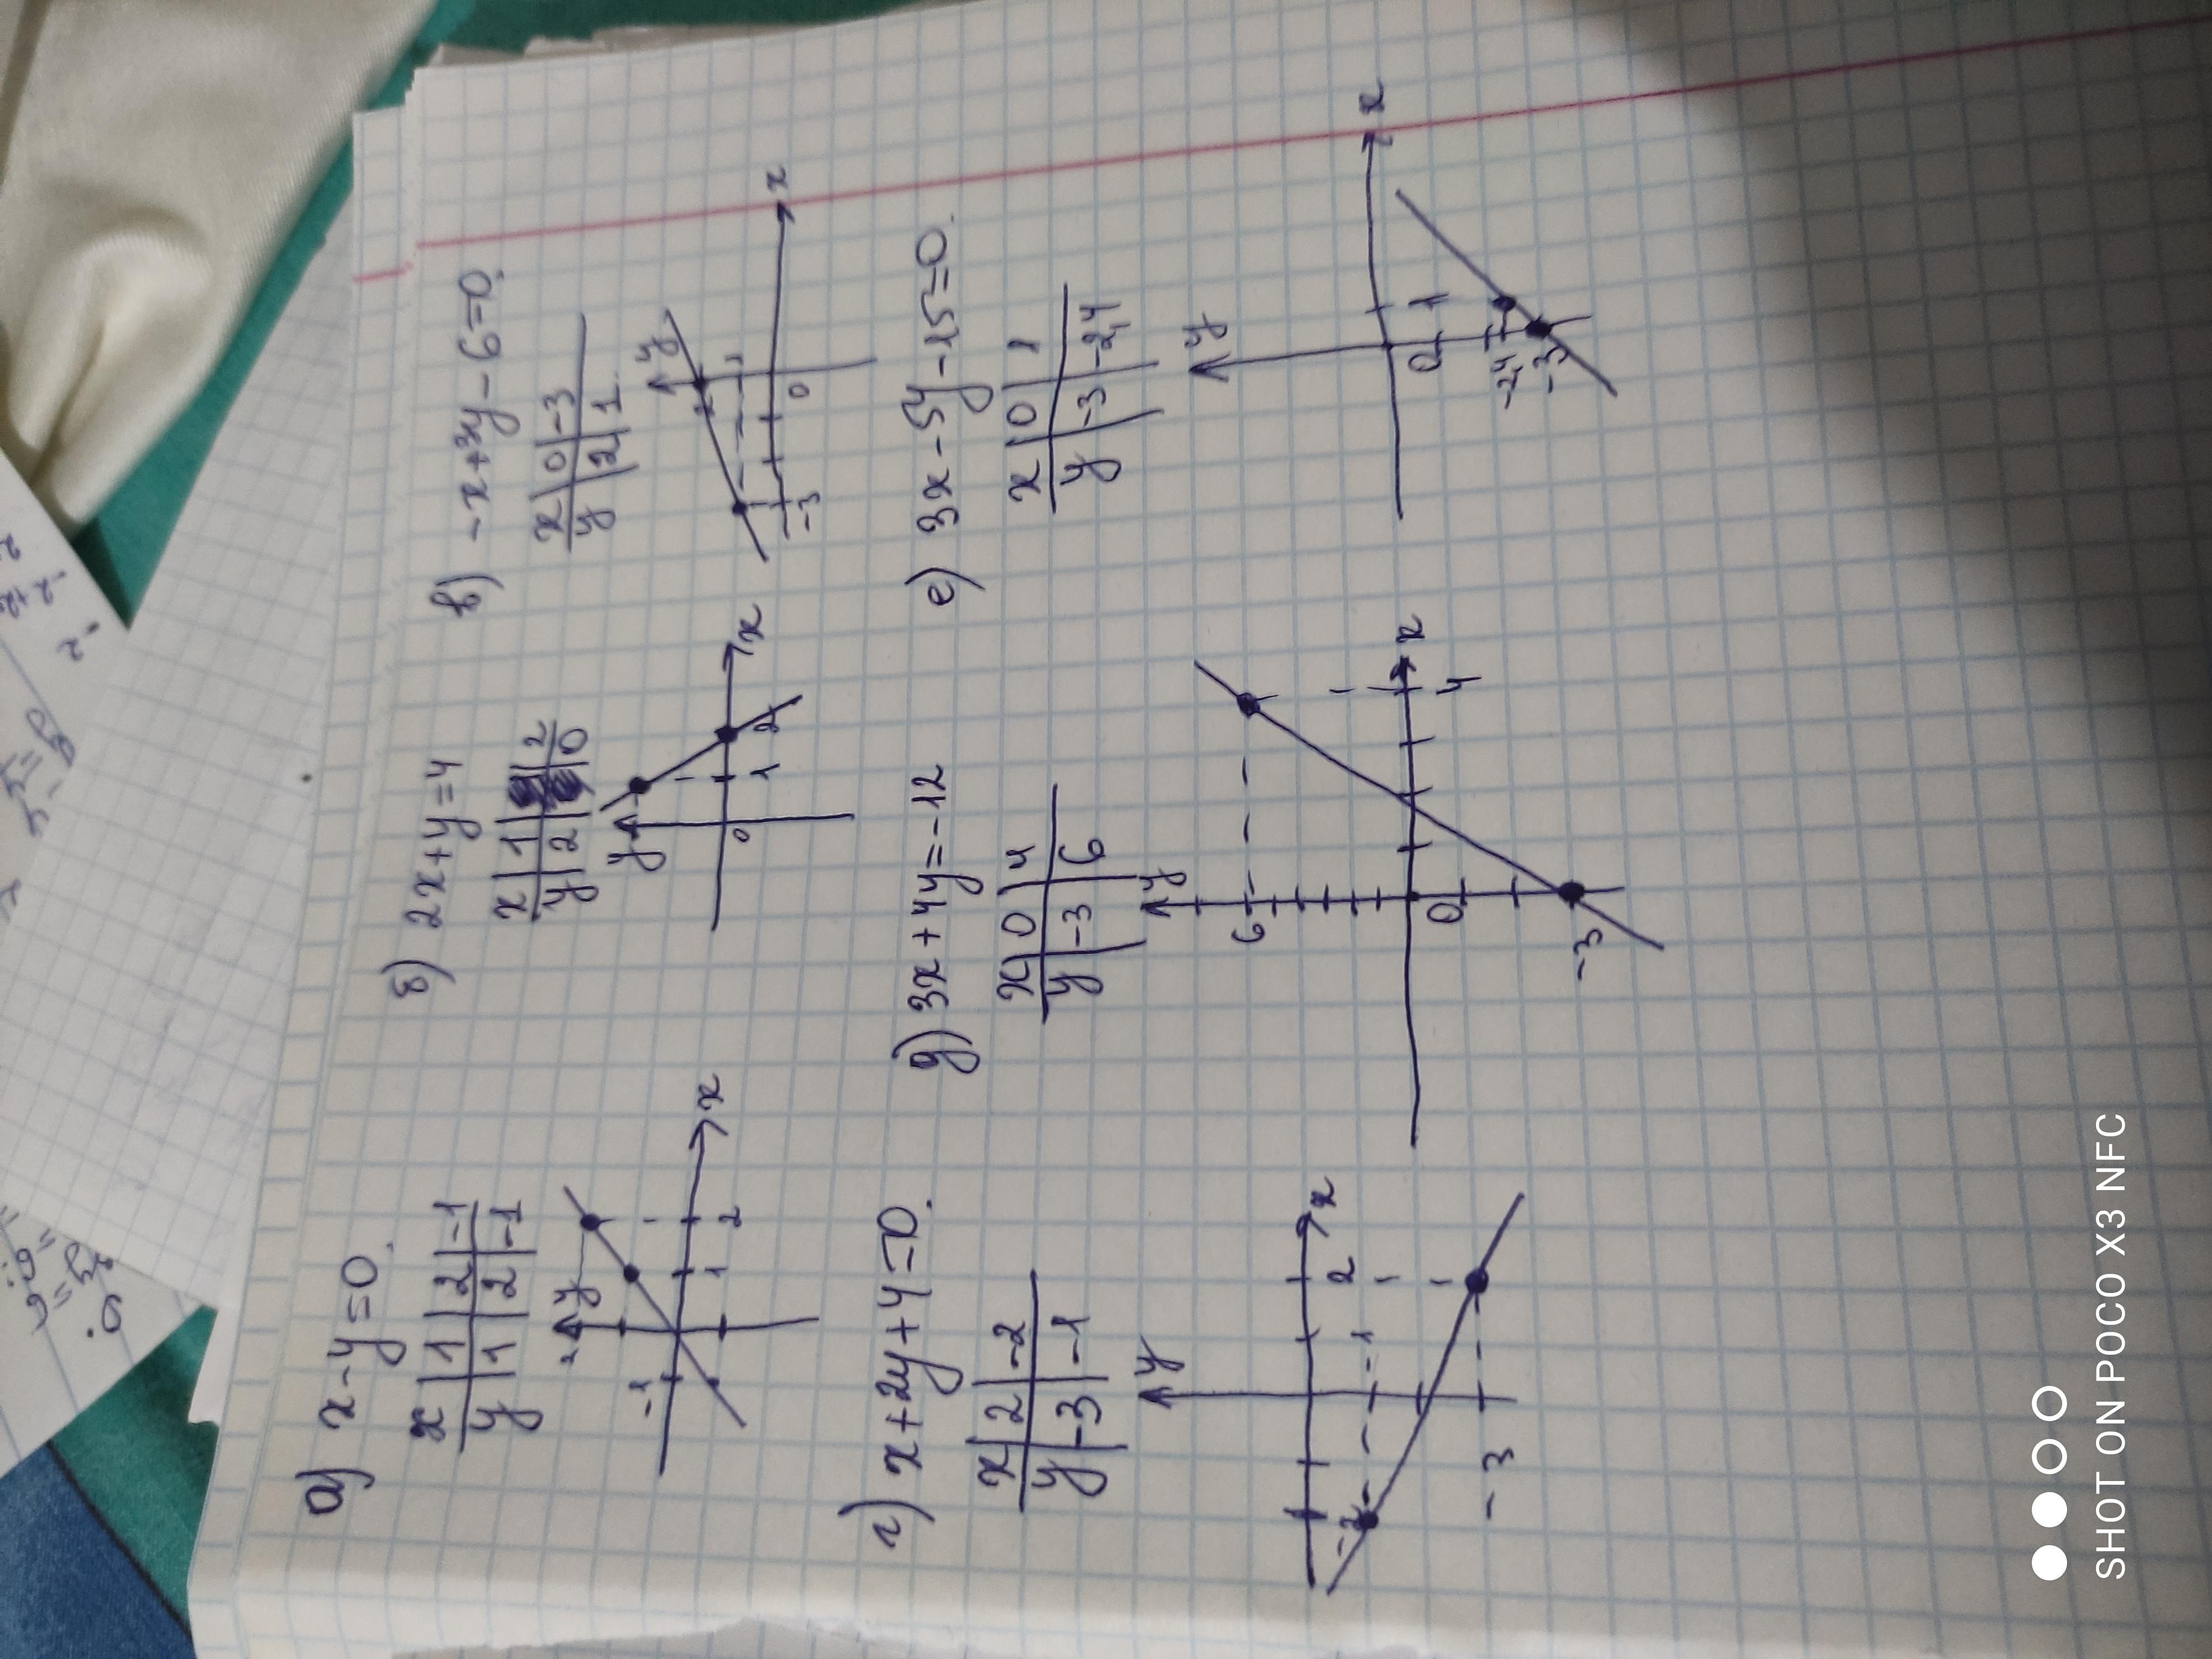 а) x-y=0.
x | 1 | 2 | -1
y | 1 | 2 | -1
y
-1 1 2 x
б) 2x+y=4
x | 1 | 2
y | 2 | 0
y
0 1 2 x
в) -x+3y-6=0.
x | 0 | -3
y | 2 | 1
y
2
1
-3 0 x
г) x+2y+4=0.
x | 2 | -2
y | -3 | -1
y
-2 2 x
-1
-3
д) 3x+4y=-12
x | 0 | 4
y | -3 | 6
y
6
0 4 x
-3
е) 3x-5y-15=0.
x | 0 | 1
y | -3 | -2,4
y
0 1 x
-2,4
-3
SHOT ON POCO X3 NFC